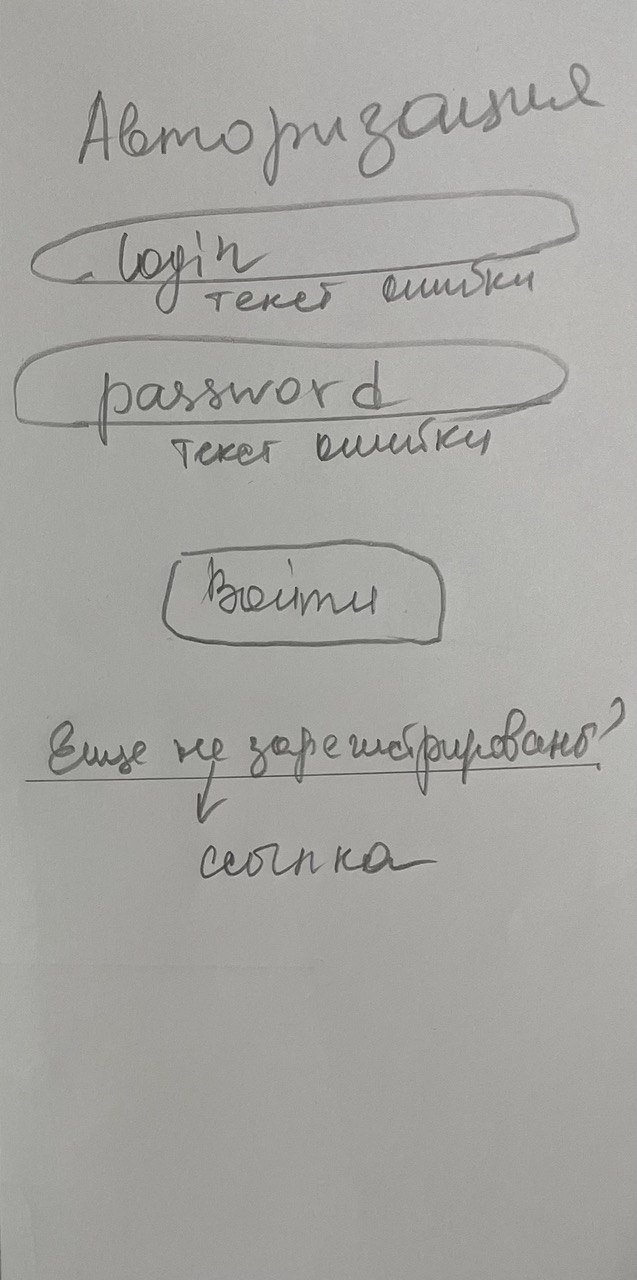 Авторизация
login
текст ошибки
password
текст ошибки
Войти
Еще не зарегистрированы?
ссылка